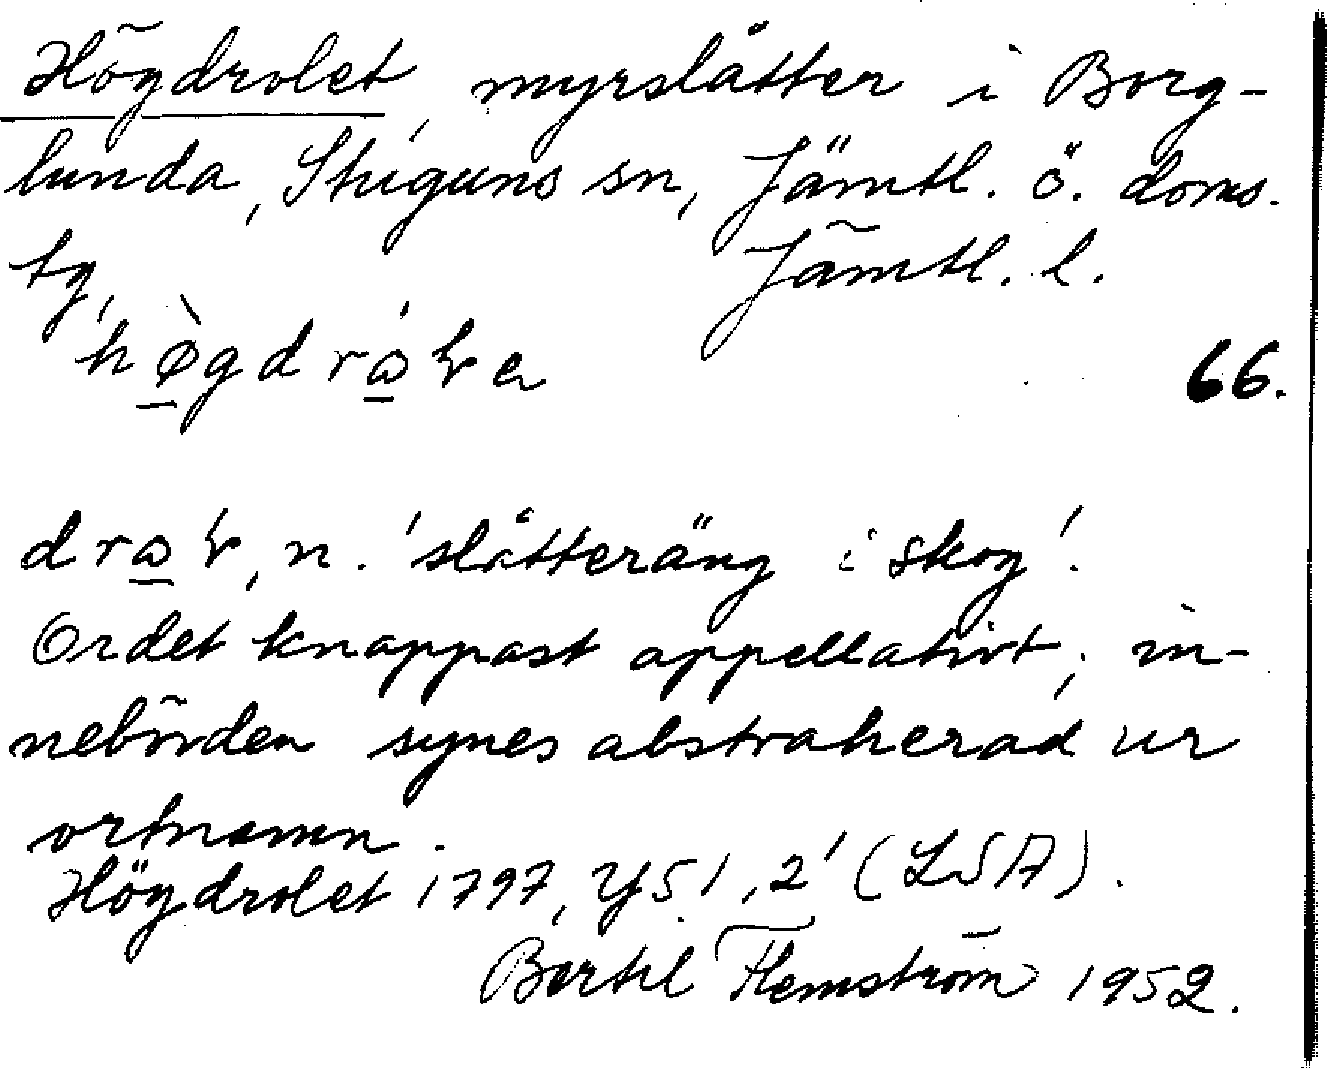 Högdrolet, myrslåtter i Borg-
lunda, Stuguns sn, Jämtl. ö. doms.
tg,
Jämtl. l.
66.
n. 'slåtteräng i skog'.
Ordet knappast appellativt; in-
nebörden synes abstraherad ur
ortnamn.
Högdrolet 1797, Y51, 2' (LSA).
Bertil Flemström 1952.